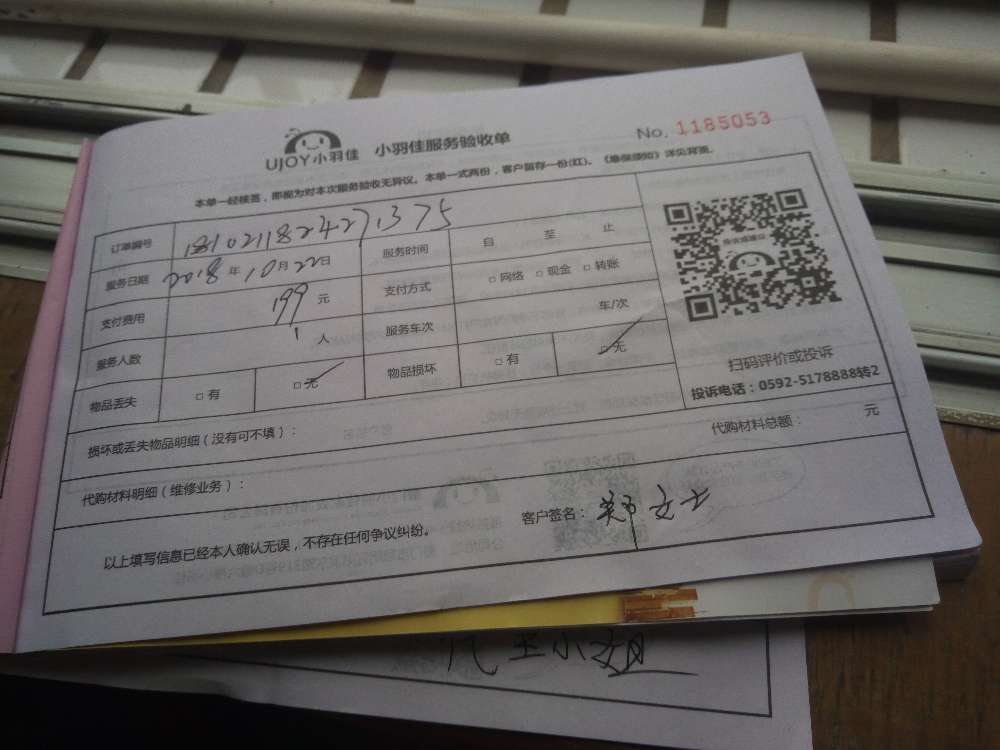 UJOY小羽佳 小羽佳服务验收单 No. 1185053
本单一经核签，即视为对本次服务验收无异议。本单一式两份，客户留存一份(红)。《维保须知》详见背页。
订单编号 1810211824271375
服务日期 2018 年 10 月 22 日 服务时间 自 至 止
支付费用 199 元 支付方式 □ 网络 □ 现金 □ 转账
服务人数 1 人 服务车次 车/次
物品丢失 □ 有 □ 无 物品损坏 □ 有 □ 无
扫码评价或投诉
投诉电话：0592-5178888转2
损坏或丢失物品明细（没有可不填）：
代购材料明细（维修业务）： 代购材料总额： 元
以上填写信息已经本人确认无误，不存在任何争议纠纷。 客户签名： 郑女士
王小姐